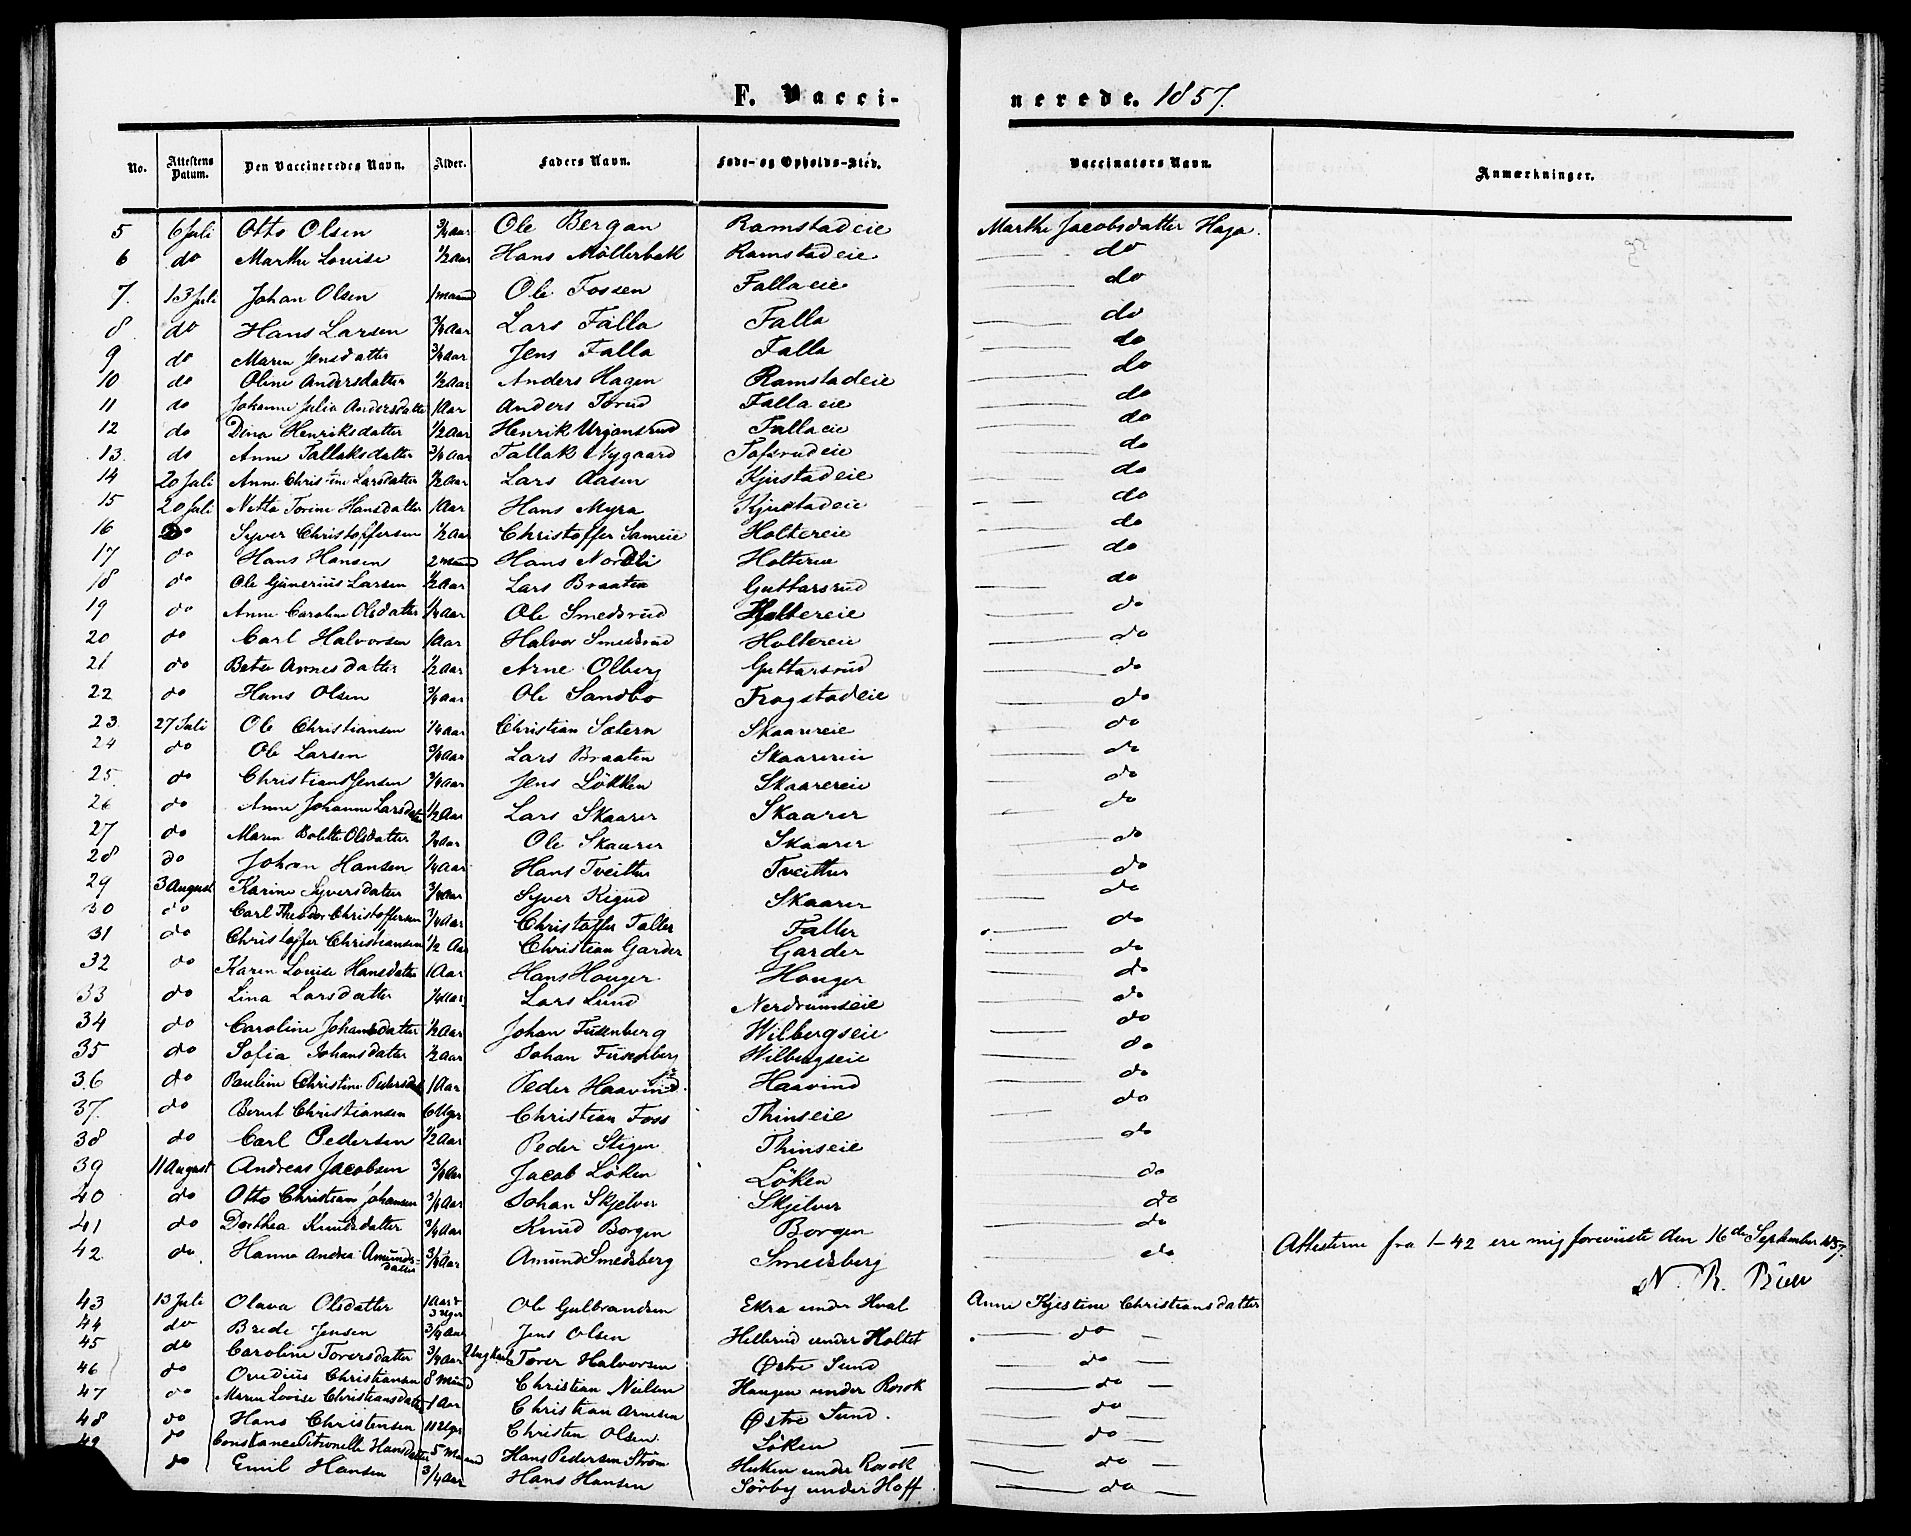 F. Vacci-
nerede. 1857.
No. Attestens Datum. Den Vaccineredes Navn. Alder. Faders Navn. Føde- og Opholds-Sted. Vaccinators Navn. Anmærkninger.
5 6 Juli Otto Olsen 3/4 Aar Ole Bergan Ramstadeie Marthe Jacobsdatter Haga.
6 do Marthe Louise 1/2 Aar Hans Möllerbak Ramstadeie do
7. 13 Juli Johan Olsen 1 maand Ole Fossen Fallaeie do
8 do Hans Larsen 3/4 Aar Lars Falla Falla do
9 do Maren Jensdatter 3/4 Aar Jens Falla Falla do
10 do Oline Andersdatter 1/2 Aar Anders Hagen Ramstadeie do
11 do Johanne Julia Andersdatter 1 Aar Anders Torud Fallaeie do
12 do Dina Henriksdatter 1/2 Aar Henrik Urgansrud Fallaeie do
13. do Anne Tallaksdatter 3/4 Aar Tallak Nygaard Tofsrudeie do
14 20 Juli Anne Christine Larsdatter 1/2 Aar Lars Aasen Kjustadeie do
15 20 Juli Netta Torine Hansdatter 1 Aar Hans Myra Kjustadeie do
16 do Syver Christoffersen 1/2 Aar Christoffer Sameie Holtereie do
17 do Hans Hansen 2 maand Hans Nordli Holtereie do
18 do Ole Gunerius Larsen 1/2 Aar Lars Braaten Guttarsrud do
19 do Anne Caroline Olsdatter 1/4 Aar Ole Smedsrud Holtereie do
20 do Carl Halvorsen 1 Aar Halvor Smedsrud Holtereie do
21 do Beta Arnesdatter 1/2 Aar Arne Olberg Guttarsrud do
22 do Hans Olsen 3/4 Aar Ole Sandbo Frogstadeie do
23 27 Juli Ole Christiansen 1/4 Aar Christian Sætern Skaarereie do
24 do Ole Larsen 3/4 Aar Lars Braaten Skaarereie do
25. do Christian Jensen 3/4 Aar Jens Lökken Skaarereie do
26 do Anne Johanne Larsdatter 1/2 Aar Lars Skaarer Skaarer do
27 do Maren Bolette Olsdatter 1/4 Aar Ole Skaarer Skaarer do
28 do Johan Hansen 1/4 Aar Hans Tveitter Tveitter do
29 3 August Karine Syversdatter 3/4 Aar Syver Rigud Skaarer do
30 do Carl Theodor Christoffersen 3/4 Aar Christoffer Faller Faller do
31 do Christoffer Christiansen 1/2 Aar Christian Garder Garder do
32 do Karen Louise Hansdatter 1 Aar Hans Hauger Hauger do
33 do Lina Larsdatter 1/4 Aar Lars Lund Nerdrumseie do
34 do Caroline Johansdatter 1/2 Aar Johan Fusenberg Wilbergseie do
35 do Sofia Johansdatter 1/2 Aar Johan Fusenberg Wilbergseie do
36 do Pauline Christine Pedersdat 1 Aar Peder Haavind. Haavind do
37. do Bernt Christiansen 6 Uger Christian Foss Thinseie do
38 do Carl Pedersen 1/2 Aar Peder Stigen Thinseie do
39 11 August Andreas Jacobsen 3/4 Aar Jacob Löken Löken do
40 do Otto Christian Johansen 3/4 Aar Johan Skjelver Skjelver do
41 do Dorthea Knudsdatter 3/4 Aar Knud Borgen Borgen do
42 do Hanna Andrea Amunds-datter 3/4 Aar Amund Smedsberg Smedsberg do Attesterne fra 1-42 ere mig foreviiste den 16de September 1857.
N. R. Bull
43 13 Juli Olava Olsdatter 1 Aar & 3 Uger Ole Gulbrandsen Ekra under Hval Anne Kjestine Christiansdatter
44 do Brede Jensen 3/4 Aar Jens Olsen Hellerud under Holtet do
45 do Caroline Toversdatter 3/4 Aar Ungkarl Tover Halvorsen Østre Sund do
46 do Ovedius Christiansen 8 maand Christian Nielsen Haugen under Rosok do
47 do Maren Lovise Christiansdatter 1 Aar Christian Arnesen Østre Sund. do
48 do Hans Christensen 11 Uger Christen Olsen. Löken do
49 do Constance Petronelle Hansdatter 5 maand Hans Pedersen Ström Huken under Rosok do
do Emil Hansen 3/4 Aar Hans Hansen Sörby under Hoff do